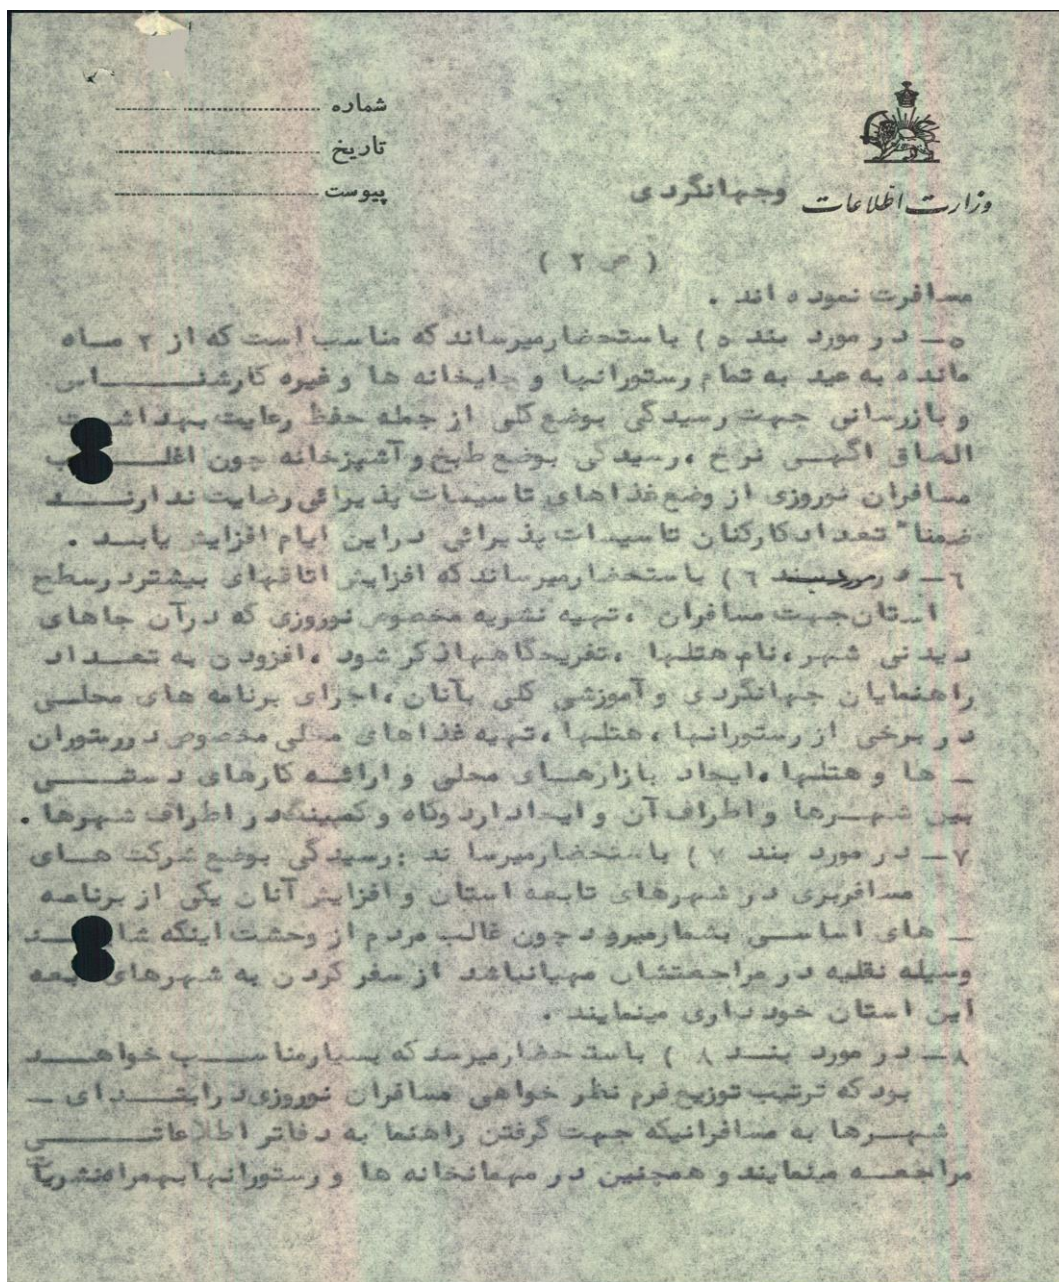 شماره
تاریخ
پیوست
وزارت اطلاعات وجهانگردی
( ص ۲ )
مسافرت نموده اند .
۵ـ در مورد بند ۵ ) باستحضارمیرساندکه مناسب است که از ۲ مـاه
مانده به عید به تمام رستورانها و چایخانه ها وغیره کارشنـــــاسی
وبازرسانی جهت رسیدگی بوضع کلی از جمله حفظ رعایت بهداشـت
الصاق اگهـی نرخ ،رسیدگی بوضع طبخ وآشپزخانه چون اغلـــب
مسافران نوروزی از وضع غذاهای تاسیسات پذیرائی رضایت ندارنــد
ضمنا" تعدادکارکنان تاسیسات پذیرائی دراین ایام افزایش یابـد .
٦ـ درمورد بند ٦ ) باستحضارمیرساندکه افزایش اتاقهای بیشتردرسطح
استان جهت مسافران ،تهیه نشریه مخصوص نوروزی که درآن جاهای
دیدنی شهر،نام هتلها ،تفریحگاههاذکر شود ،افزودن به تعـداد
راهنمایان جهانگردی وآموزشی کلی بآنان،اجرای برنامه های محلـی
در برخی از رستورانها ،هتلها ،تهیه غذاهای محلی مخصوص دررستوران
ـ ها و هتلها ،ایجاد بازارهـای محلی وارائـه کارهای دستــــی
بین شهـرها واطراف آن وایجاداردوگاه وکمپینگدر اطراف شهرها .
۷ـ در مورد بند ۷ ) باستحضارمیرسا ند :رسیدگی بوضع شرکت هـای
مسافربری در شهرهای تابعه استان وافزایش آنان یکی از برنامه
ـ های اساسی بشمارمیرود چون غالب مردم از وحشت اینکه شایـد
وسیله نقلیه در مراجعتشان مهیانباشد از سفر کردن به شهرهای تابعه
این استان خودداری مینمایند .
۸ـ در مورد بنـد ۸ ) باستحضارمیرسدکه بسیارمناسـب خواهـــد
بودکه ترتیب توزیع فرم نظر خواهی مسافران نوروزی درابتـدای ـ
شهـرها به مسافرانیکه جهت گرفتن راهنما به دفاتر اطلاعاتــــی
مراجعـه مینمایند وهمچنین در مهمانخانه ها و رستورانهابهمراه نشریات